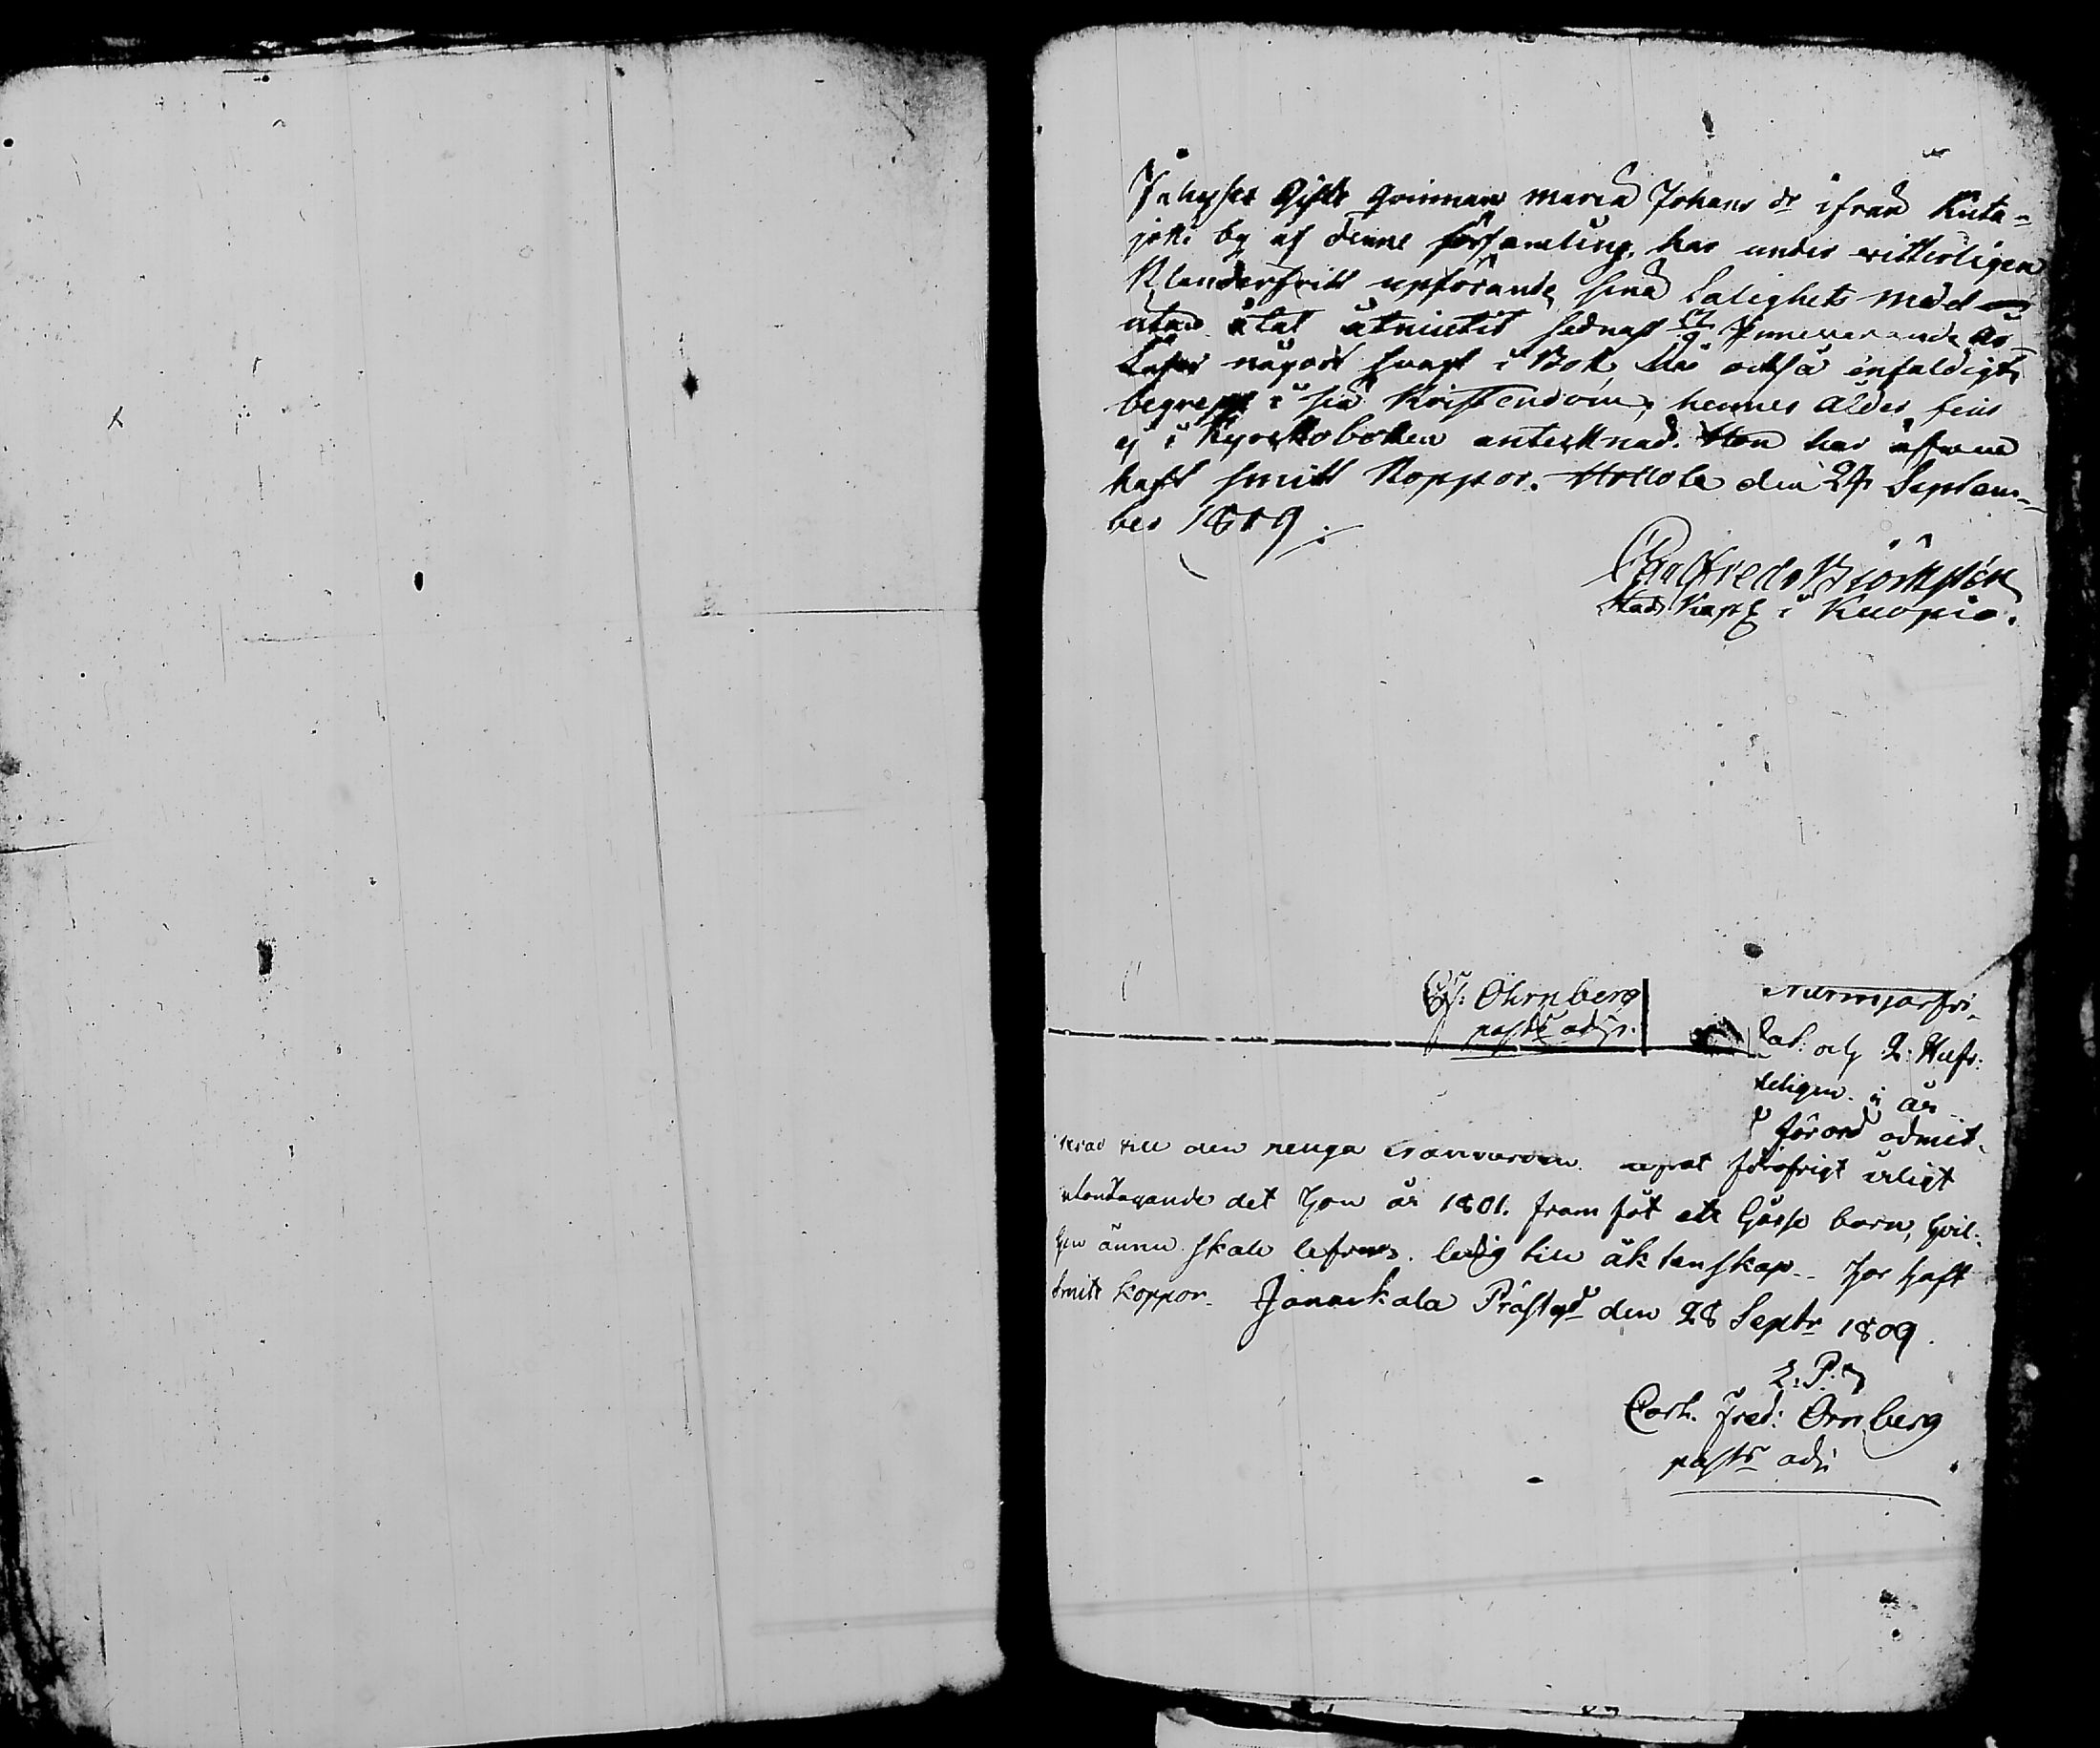 Inhyses Gifte qvinnan Maria Johans dr ifrån Kuta=
joki by af denne församling, har under vitterligen
Klanderfritt upförande, sina Salighets Medel
utan åtal åtniutit sednast innevarande År
Läser något svagt i Bok, Där också enfaldigt
begrepp i sin Kristendom; hennes ålder fins
ej i Kyrckoboken anteknad. Hon har äfven
haft smitt Koppor. Hollola den 24 Septem-
ber 1809.
Carl Fredr Björkstén
Stads Kapl i Kuopio.
Öhrnberg
past adj.
Nurmijärfvi
Lat: och L: Hufv:
deligen i år
förord admit-
till den unga utgat för öfrigt ärligt
det hon år 1801. framfödt ett Gåsse barn, hvil-
ken ännu skall lefva. ledig till äktenskap. har haft
Smitt koppor. Janackala Prästgd den 28 Septr 1809.
L: P:
Carl Fred: Örnberg
pastr adj